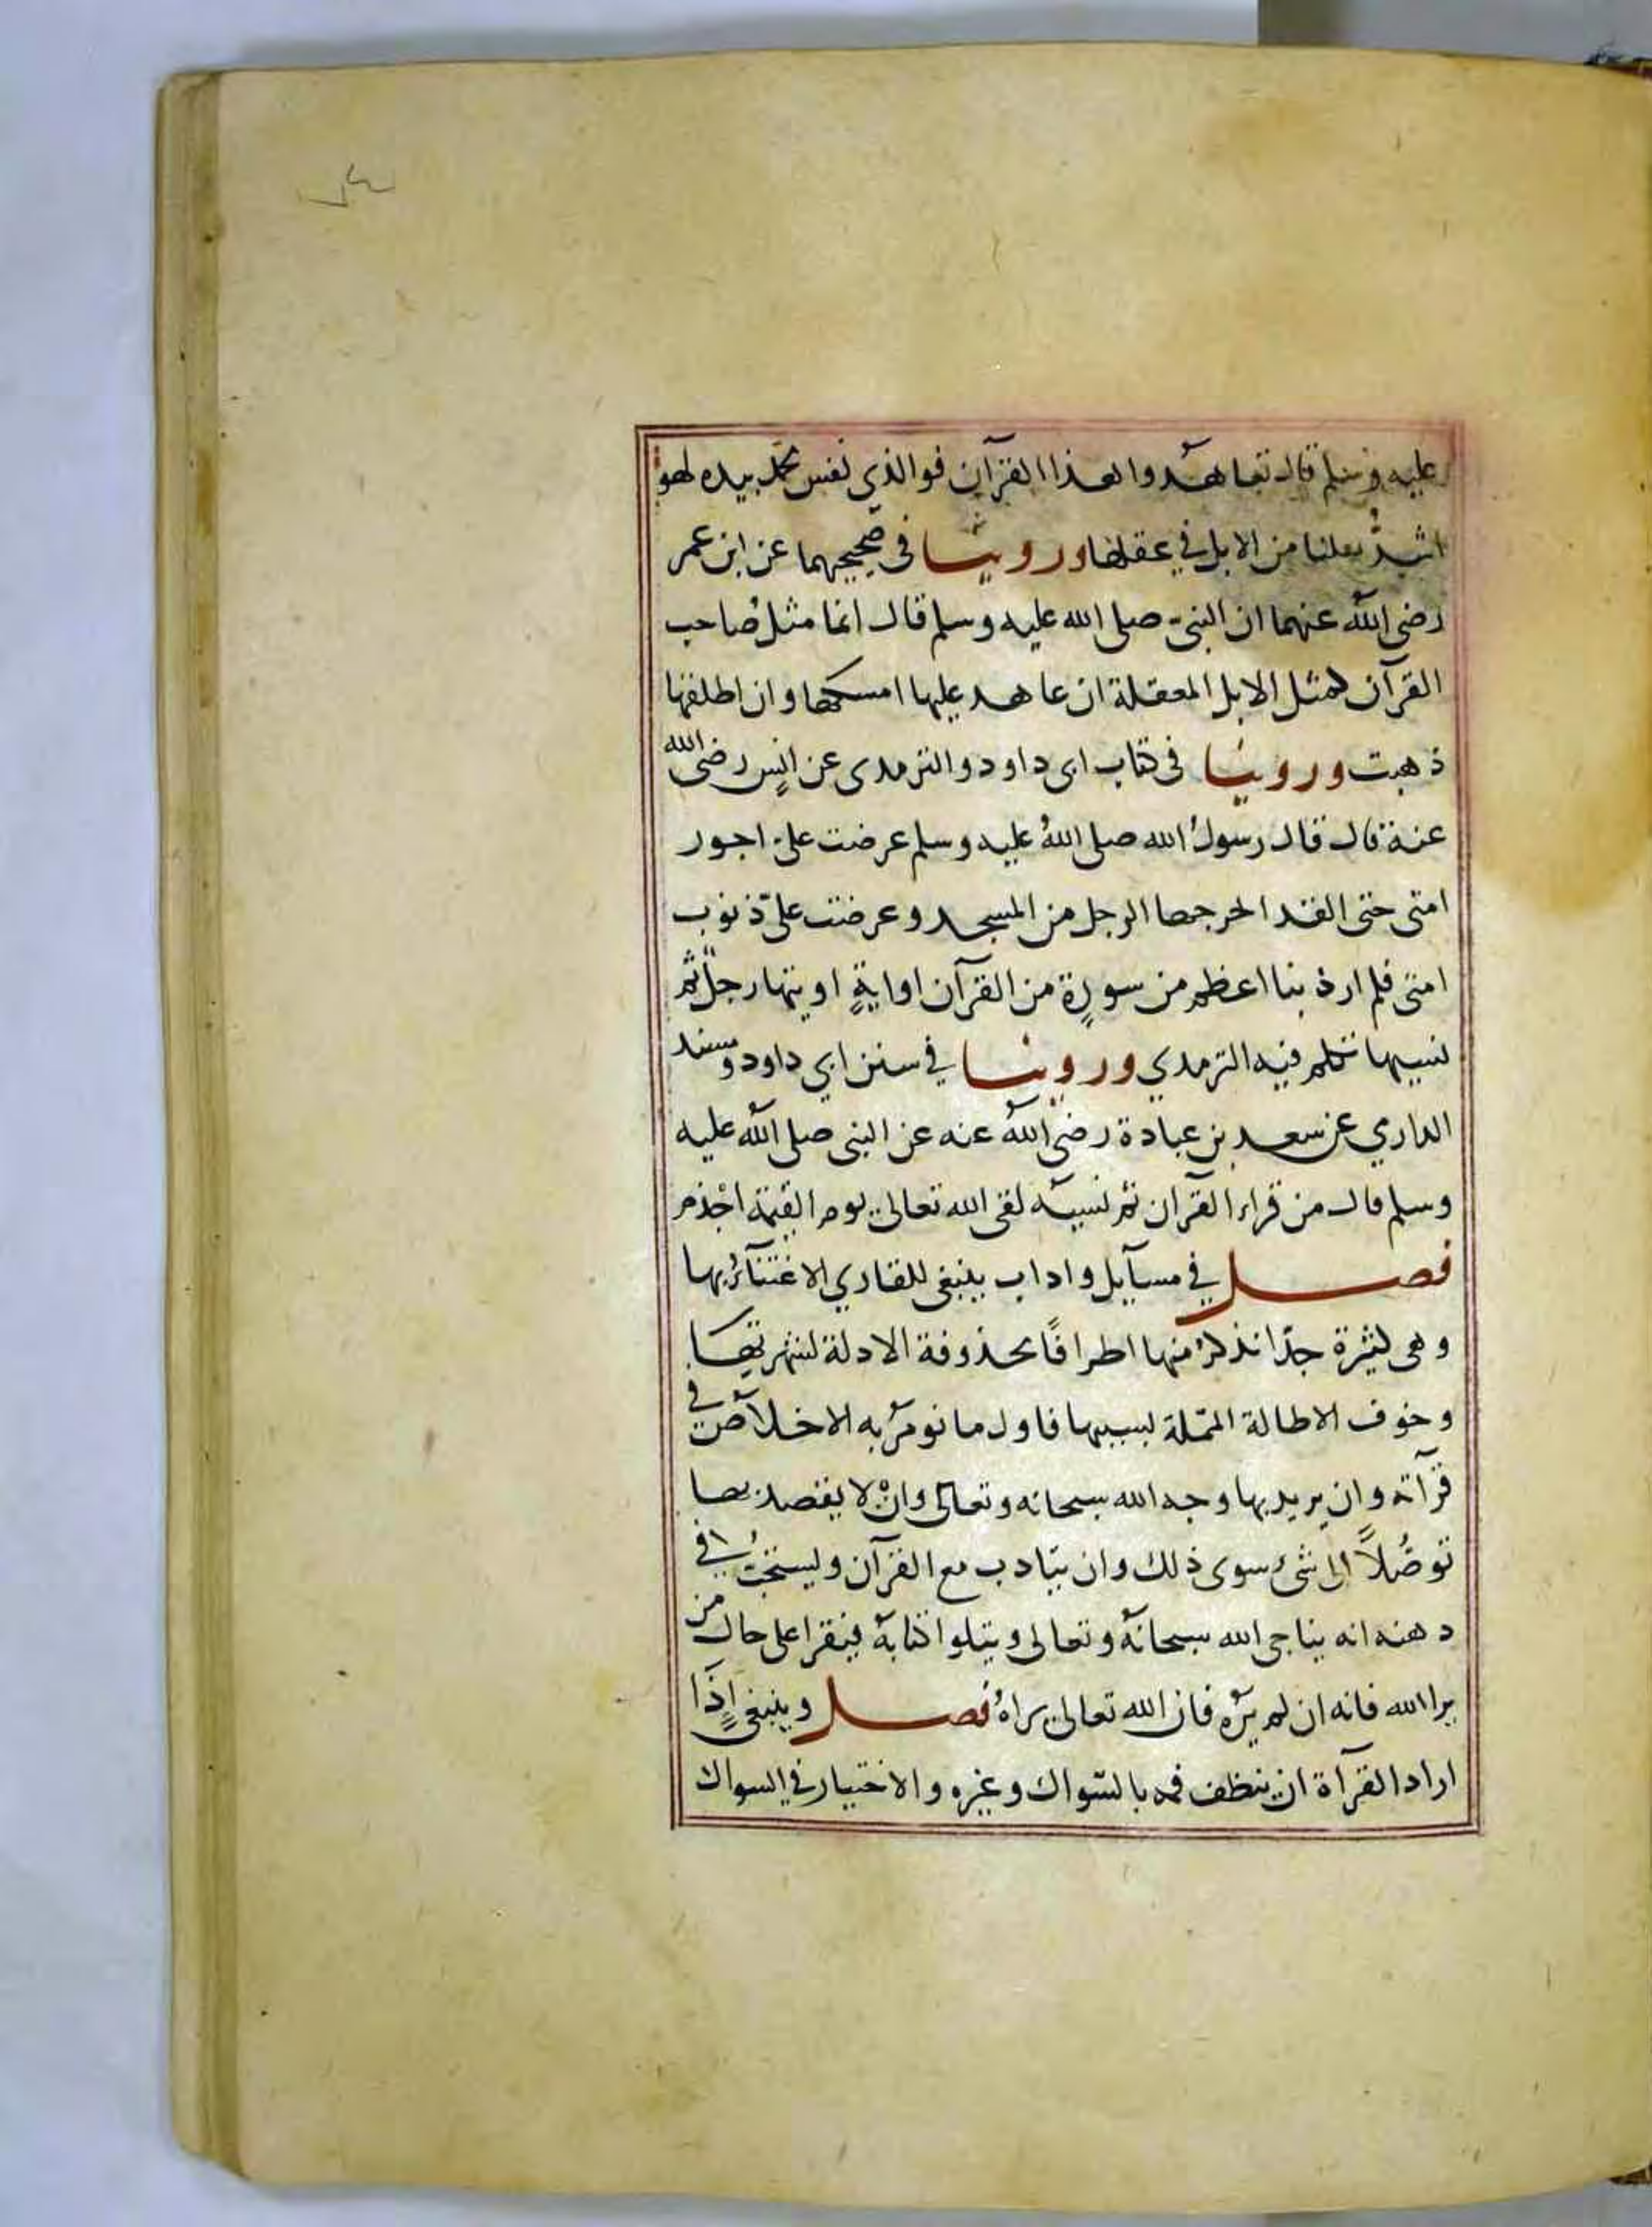 عليه وسلم قال تعاهدوا هذا القرآن فوالذي نفس محمد بيده لهو
اشدّ تفلتا من الابل في عقلها وروينا في صحيحيهما عن ابن عمر
رضي الله عنهما ان النبي صلى الله عليه وسلم قال انما مثل صاحب
القرآن كمثل الابل المعقلة ان عاهد عليها امسكها وان اطلقها
ذهبت وروينا في كتاب ابى داود والترمدى عن انسٍ رضى الله
عنه قال قال رسولُ الله صلى اللهُ عليه وسلم عرضت علىّ اجور
امتى حتى القذا اخرجها الرجل من المسجد وعرضت علىّ ذنوب
امتى فلم ار ذنبا اعظم من سورةٍ من القرآن او ايةٍ اوتيها رجلٌ ثم
نسيها تكلم فيه الترمدي وروينا في سنن ابي داود ومسند
الداري عن سعد بن عبادة رضى اللهُ عنه عن النبي صلى الله عليه
وسلم قال من قراء القرآن ثم نسيه لقى الله تعالى يوم القيمة اجْذم
فصل في مسآيل واداب ينبغى للقاري الاعتنآءُ بها
وهى كثيرة جدّا نذكرُ منها اطرافًا محذوفة الادلة لشهرتها
وخوف الاطالة المملة بسببها فاول ما نومرُ به الاخلاص في
قرآته وان يريد بها وجه الله سبحانه وتعالى وانْ لا يقصد بها
توصُّلاً الى شىء سوى ذلك وان يتادب مع القرآن ويستحضرُ في
دهنه انه يناجى الله سبحانه وتعالى ويتلوا كتابهُ فيقرا على حال من
يرا الله فانه ان لم يرَهُ فان الله تعالى يراهُ فصل وينبغي إذَا
اراد القرآة ان ينظف فمه بالسّواك وغيره والاختيار في السواك